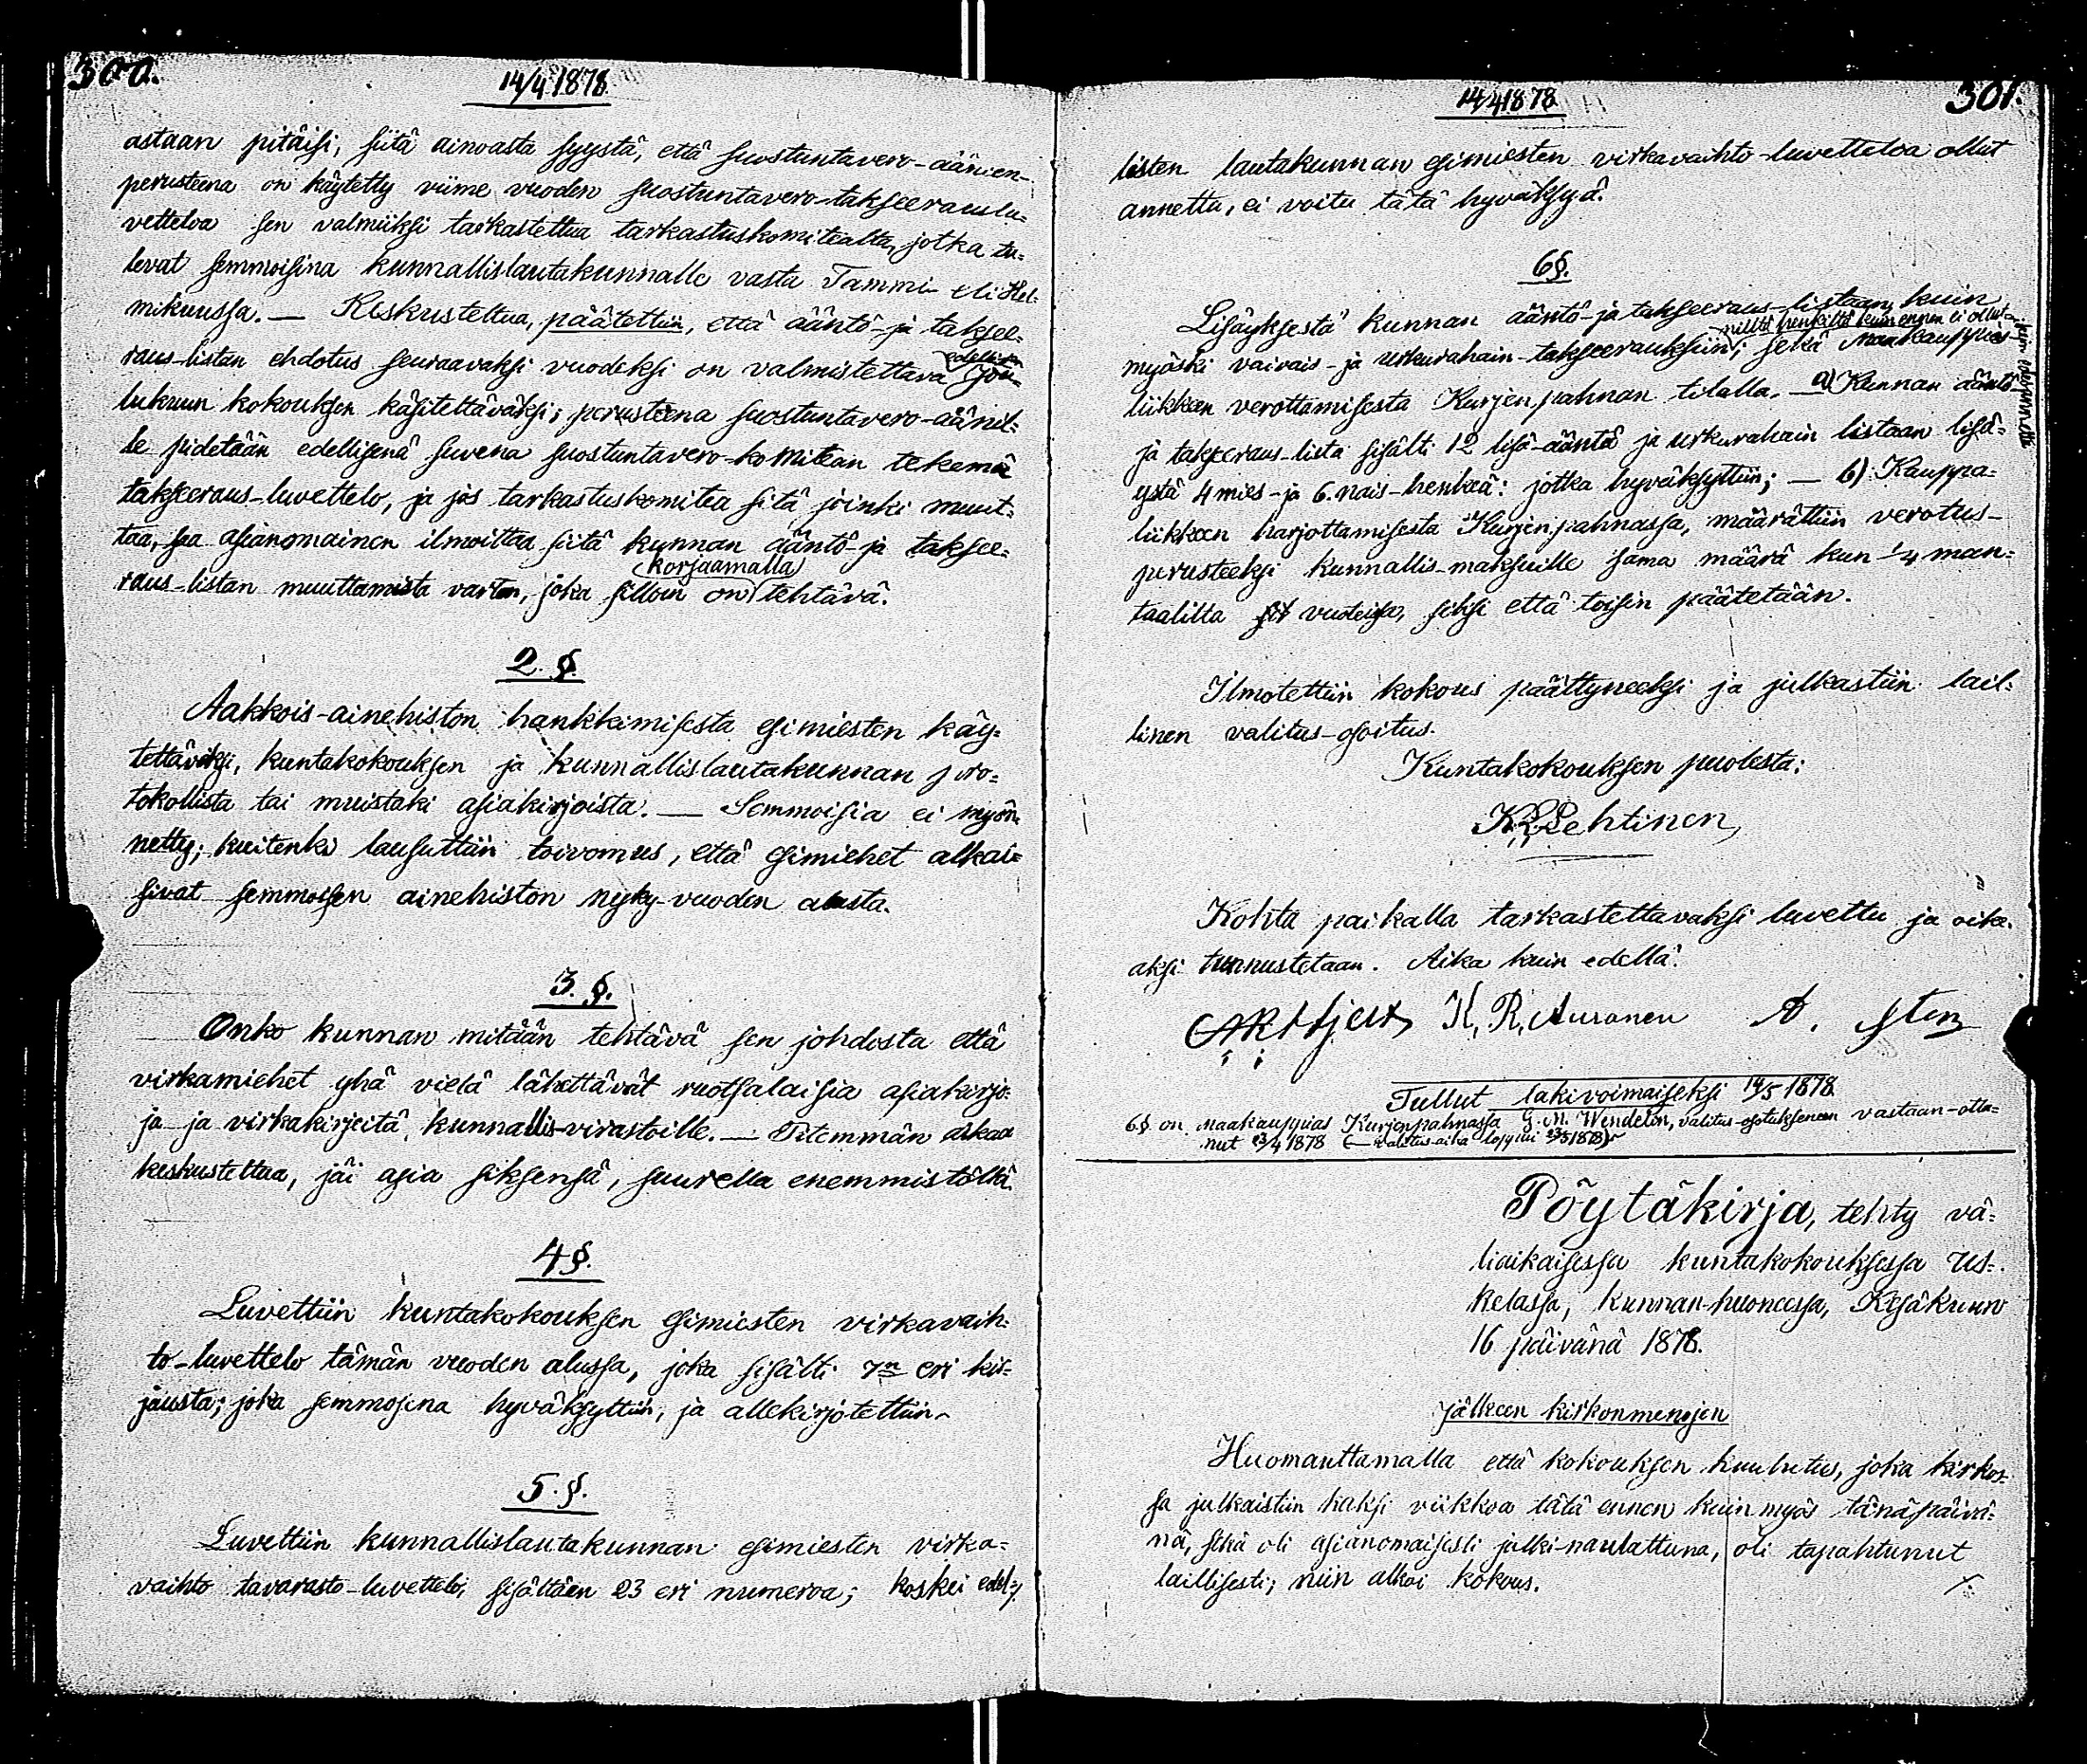 300.
14/4 1878
astaan pitäisi, siitä ainoasta syystä, että suostuntavero-äänien-
perusteena on käytetty viime vuoden suostuntavero-takseerauslu=
vetteloa sen valmiiksi tarkastettua tarkastuskomitealta, jotka tu=
levat semmoisina kunnallislautakunnalle vasta Tammi- eli Hel=
mikuussa. — Keskusteltua, päätettiin, että ääntö- ja taksee=
raus-listan ehdotus seuraavaksi vuodeksi on valmistettava Jou=
lukuun kokouksen käsiteltäväksi; perusteena suostuntavero-äänil=
le pidetään edellisenä suvena suostuntavero-komitean tekemä
takseeraus-luvettelo, ja jos tarkastuskomitea sitä joinki muut=
taa, saa asianomainen ilmoittaa siitä kunnan ääntö- ja taksee=
korjaamalla
raus-listan muuttamista varten, joka silloin on tehtävä.
2. §.
Aakkois-ainehiston hankkimisesta esimiesten käy=
tettäväksi, kuntakokouksen ja kunnallislautakunnan pro=
tokollista tai muistaki asiakirjoista. — Semmoisia ei myön=
netty; kuitenki lausuttiin toivomus, että esimiehet alkai=
sivat semmoisen ainehiston nyky-vuoden alusta.
3. §.
Onko kunnan mitään tehtävä sen johdosta että
virkamiehet yhä vielä lähettävät ruotsalaisia asiakirjo=
ja ja virkakirjeitä kunnallis-virastoille. — Pitemmän aikaa
keskusteltua, jäi asia siksensä, suurella enemmistöllä.
4 §.
Luvettiin kuntakokouksen esimiesten virkavaih=
to-luvettelo tämän vuoden alussa, joka sisälti 7n eri kir=
jausta; joka semmosena hyväksyttiin, ja allekirjotettiin.
5. §.
Luvettiin kunnallislautakunnan esimiesten virka=
vaihto tavarasto-luvettelo, sisältäen 23 eri numeroa; koskei edel=
14/4 1878
301.
listen lautakunnan esimiesten virkavaihto-luvetteloa ollut
annettu, ei voitu tätä hyväksyä.
6 §.
Lisäyksestä kunnan ääntö- ja takseeraus-listaan, kuin
niiltä henkiltä kuin ennen ei ollut
myöski vaivais- ja urkurahain-takseerauksiin; sekä maakauppias-
liikkeen verottamisesta Kurjenpahnan tilalla. — a) Kunnan ääntö-
ja takseeraus-lista sisälti 12 lisä-ääntä ja urkurahain listaan lisä=
ystä 4 mies- ja 6. nais-henkeä: jotka hyväksyttiin; — b) Kauppa=
liikkeen harjottamisesta Kurjenpahnassa, määrättiin verotus-
perusteeksi kunnallis-maksuille sama määrä kun 1/4 man=
taalilta vuodessa, siksi että toisin päätetään.
Ilmotettiin kokous päättyneeksi ja julkastiin lail=
linen valitus-osoitus.
Kuntakokouksen puolesta:
Lehtinen
Kohta paikalla tarkastettavaksi luvettu ja oike=
aksi tunnustetaan. Aika kuin edellä.
K. R. Auranen A. Sten
Tullut lakivoimaiseksi 14/5 1878
6 § on maakauppias Kurjenpahnassa G. M. Wendelin, valitus-osotuksensa vastaan-otta=
nut 23/4 1878 (— valitus-aika loppui 23/5 1878)
Pöytäkirja, tehty vä=
liaikaisessa kuntakokouksessa Us=
kelassa, kunnan-huoneessa, Kesäkuun
16 päivänä 1878.
jälkeen kirkonmenojen
Huomauttamalla että kokouksen kuulutus, joka kirkos=
sa julkaistiin kaksi viikkoa tätä ennen kuin myös tänäpäivä=
nä, sekä oli asianomaisesti julki-naulattuna, oli tapahtunut
laillisesti; niin alkoi kokous.